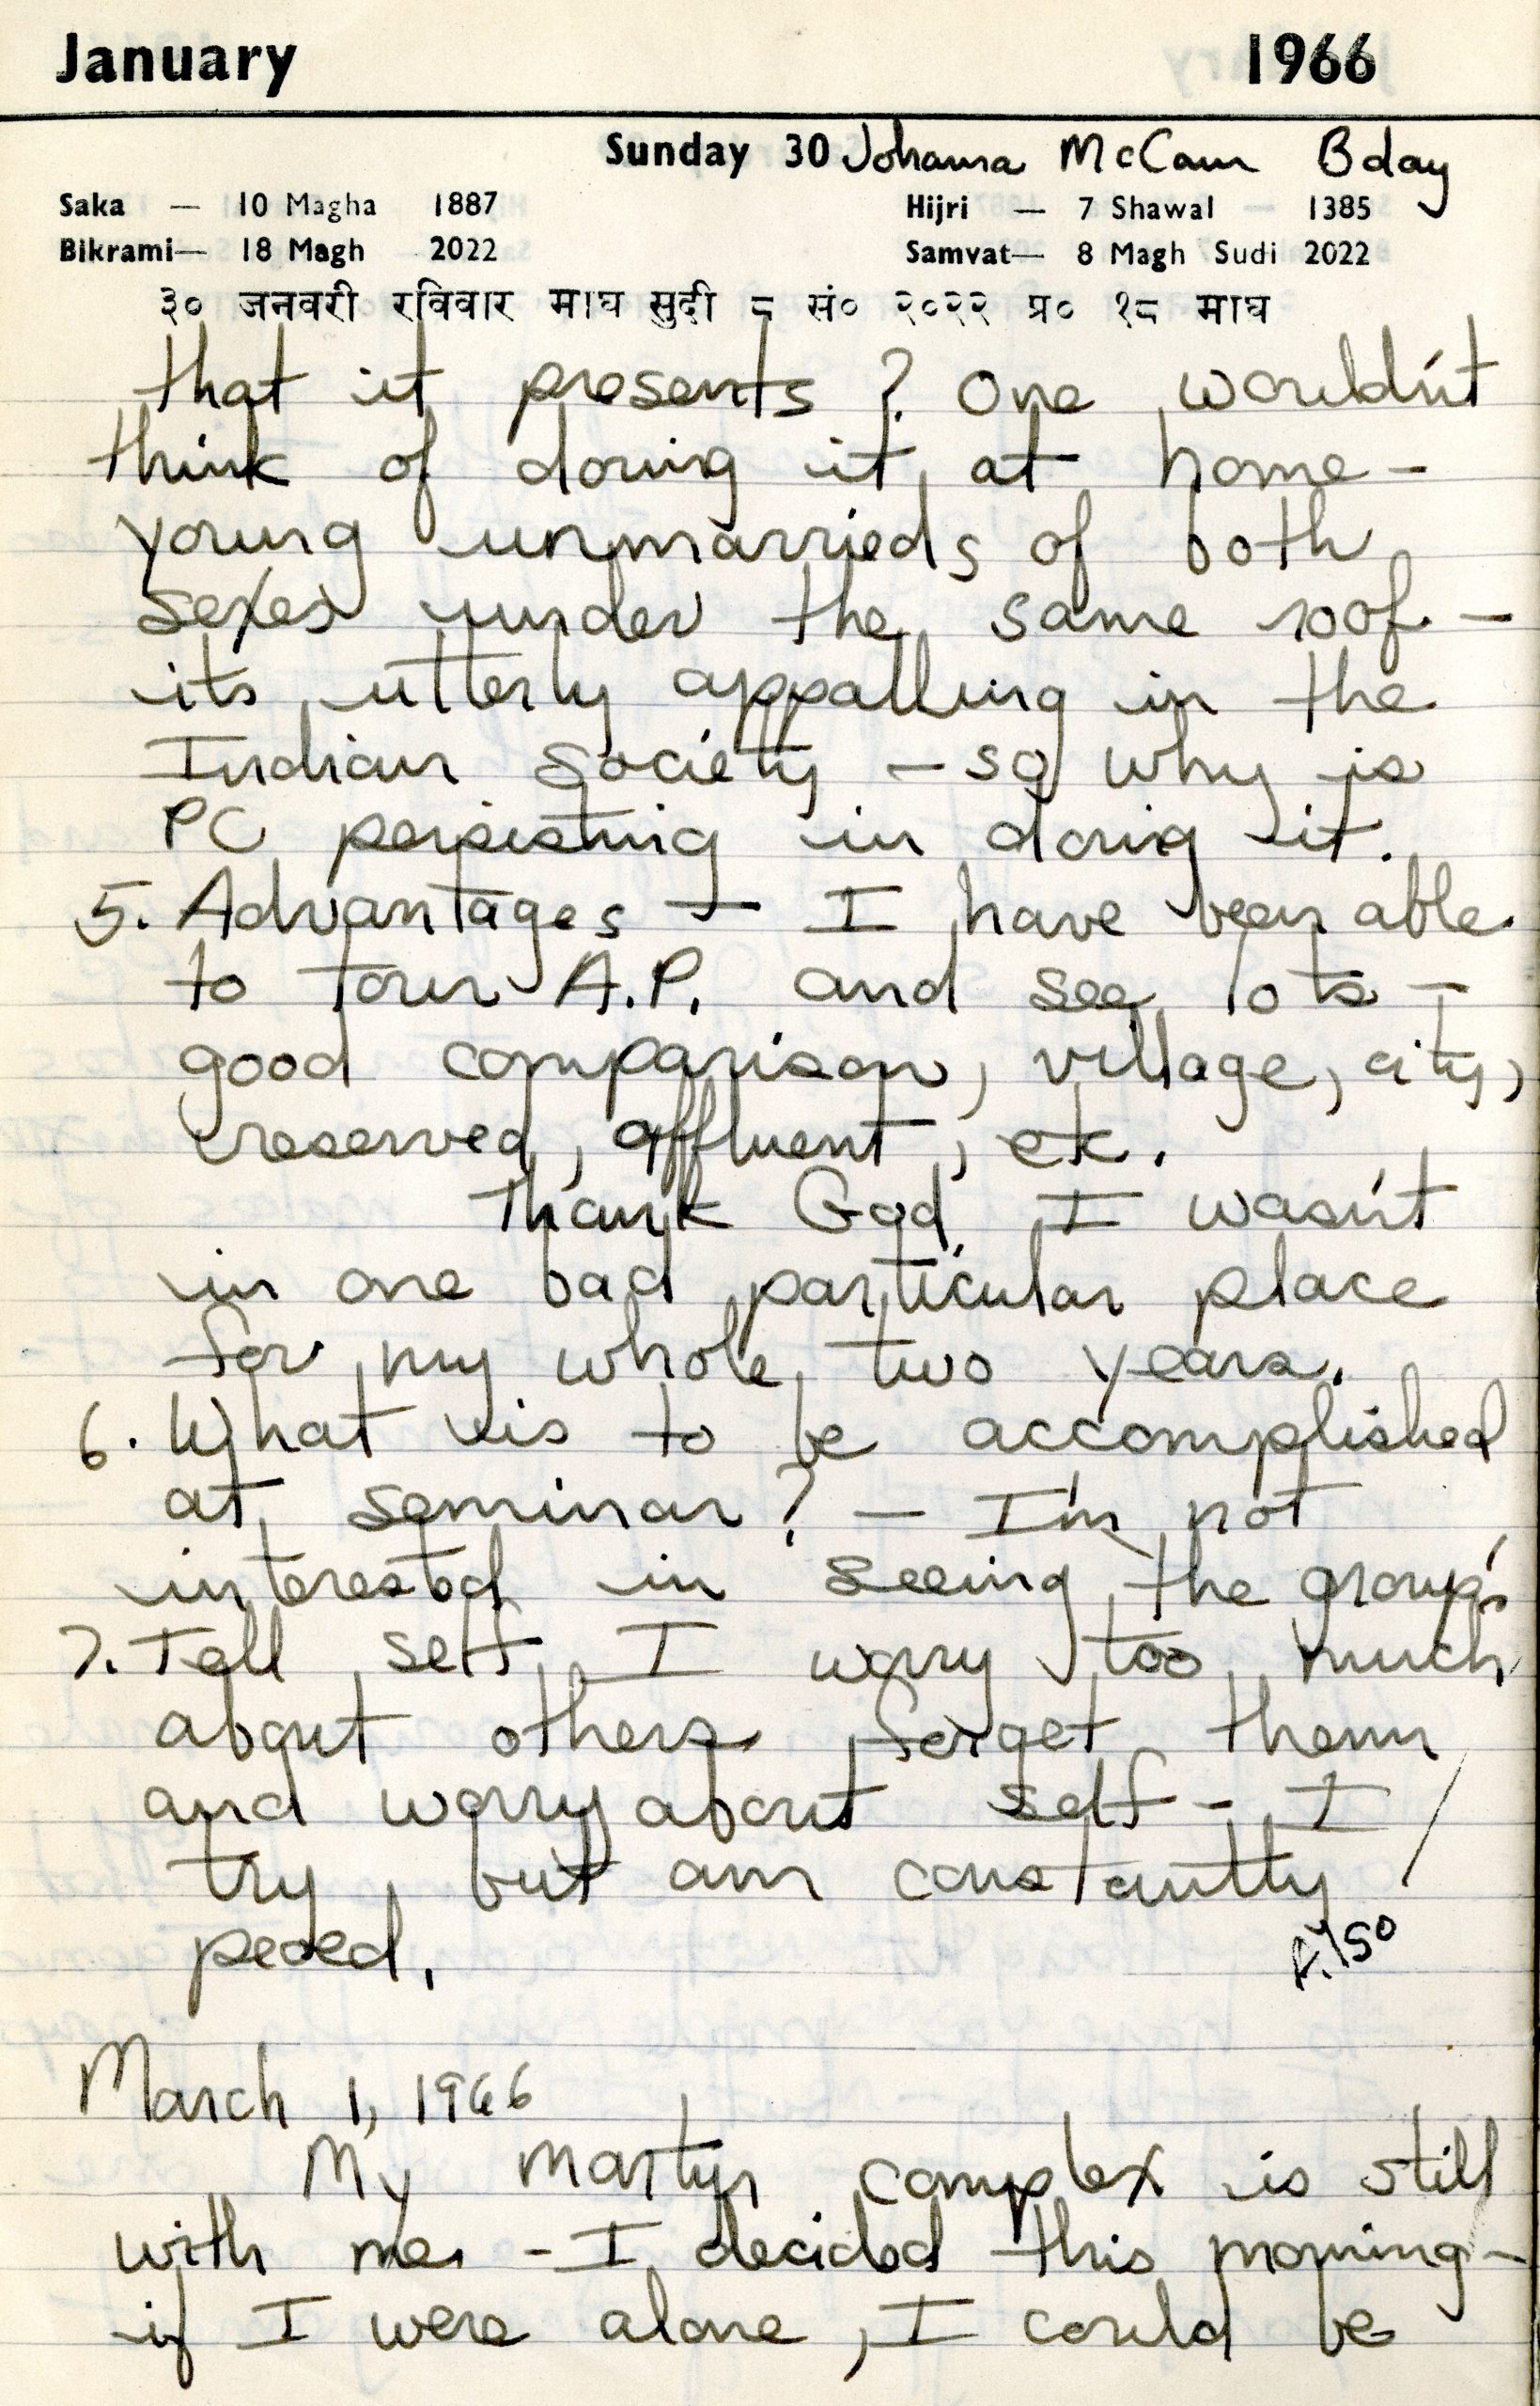 January 1966
Sunday 30 Johanna McCann Bday
Saka — 10 Magha 1887 Hijri — 7 Shawal — 1385
Bikrami— 18 Magh 2022 Samvat— 8 Magh Sudi 2022
३० जनवरी रविवार माघ सुदी ८ सं० २०२२ प्र० १८ माघ
that it presents? One wouldn't
think of doing it at home -
young unmarrieds of both
sexes under the same roof. -
its utterly appalling in the
Indian society - so why is
PC persisting in doing it.
5. Advantages - I have been able
to tour A.P. and see lots -
good comparison, village, city,
reserved, affluent, etc.
Thank God I wasn't
in one bad particular place
for my whole two years.
6. What is to be accomplished
at seminar? - I'm not
interested in seeing the group's
7. Tell self I worry too much
about others forget them
and worry about self - I
try, but am constantly
peeved.
March 1, 1966
My martyr complex is still
with me. - I decided this morning -
if I were alone, I could be